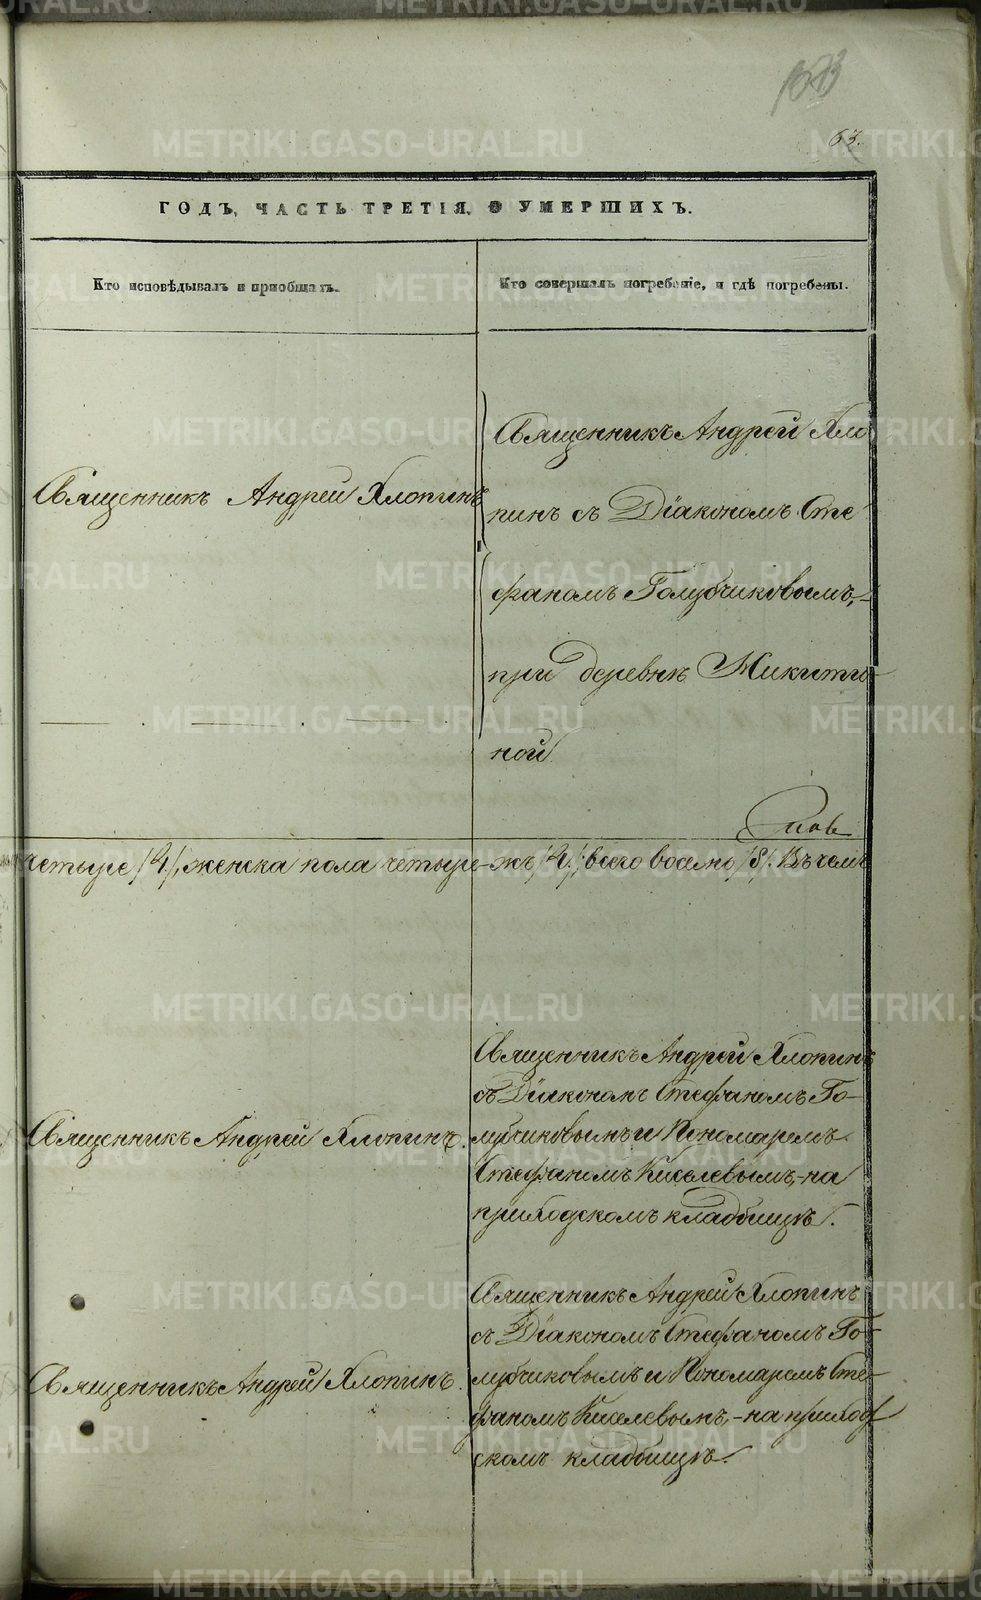 63.
ГОДЪ, ЧАСТЬ ТРЕТІЯ, О УМЕРШИХЪ.
Кто исповѣдывалъ и пріобщалъ.
Кто совершалъ погребеніе, и гдѣ погребены.
Священникъ Андрей Хлопинъ
Священникъ Андрей Хло
пинъ съ Діакономъ Сте
фаномъ Голубчиковымъ,-
при деревнѣ Микити-
ной
четыре /4/, женска пола четыре-жъ /4./; всего восемь /8/. Въ чемъ
Священникъ Андрей Хлопинъ.
Священникъ Андрей Хлопинъ
съ Діакономъ Стефаномъ Го-
лубчиковымъ и Пономаремъ
Стефаномъ Киселевымъ,-на
приходскомъ кладбищѣ.
Священникъ Андрей Хлопинъ.
Священникъ Андрей Хлопинъ
съ Діакономъ Стефаномъ Го-
лубчиковымъ и Пономаремъ Сте-
фаномъ Киселевымъ,-на приход
скомъ кладбищѣ.
METRIKI.GASO-URAL.RU